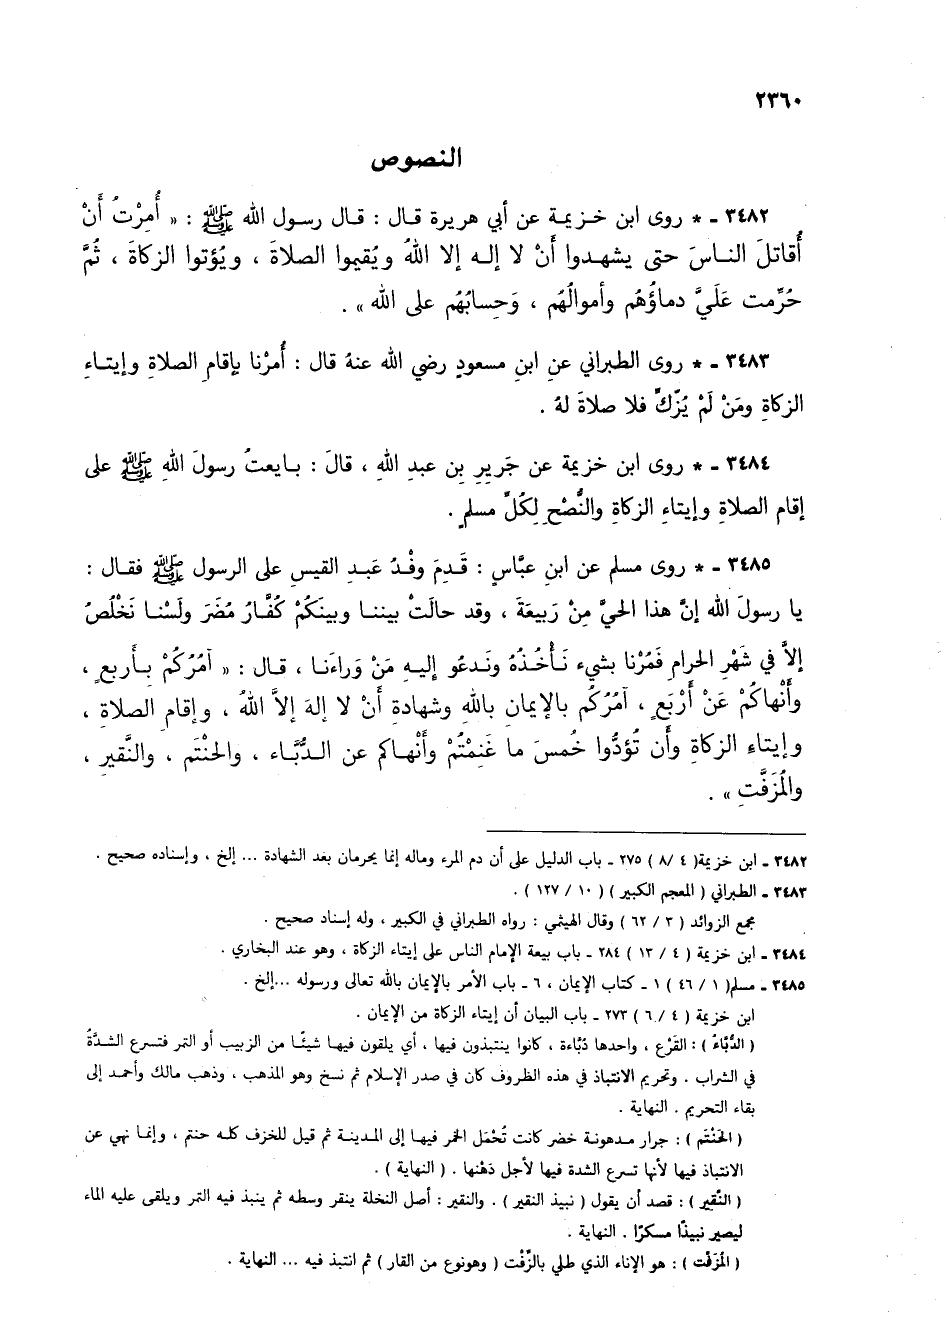 ٢٣٦٠
النصوص
٣٤٨٢ - * روى ابن خزيمة عن أبي هريرة قال : قال رسول الله ﷺ : « أُمِرْتُ أَنْ
أُقاتلَ الناسَ حتى يشهدوا أَنْ لا إله إلا اللهُ ويُقيموا الصلاةَ ، ويُؤتوا الزكاةَ ، ثُمَّ
حُرِّمت عَلَيَّ دماؤُهُم وأموالُهُم ، وَحِسابُهُم على الله » .
٣٤٨٣ - * روى الطبراني عن ابنِ مسعودٍ رضي الله عنهُ قال : أُمرْنا بإقامِ الصلاةِ وإيتاءِ
الزكاةِ ومَنْ لَمْ يُزَكِّ فلا صلاةَ لهُ .
٣٤٨٤ - * روى ابن خزيمة عن جَريرِ بن عبدِ اللهِ ، قالَ : بايعتُ رسولَ اللهِ ﷺ على
إقام الصلاةِ وإيتاءِ الزكاةِ والنُّصْحِ لِكُلِّ مسلمٍ .
٣٤٨٥ - * روى مسلم عن ابنِ عبَّاسٍ : قَدِمَ وفْدُ عَبدِ القيسِ على الرسول ﷺ فقال :
يا رسولَ الله إنَّ هذا الحيَّ مِنْ رَبيعَةَ ، وقد حالَتْ بيننا وبينَكُمْ كُفَّارُ مُضَرَ ولَسْنا نَخْلُصُ
إلاَّ في شَهْرِ الحرامِ فَمُرْنا بشيء نَأْخُذُهُ ونَدعُو إليهِ مَنْ وراءَنا ، قال : « آمُرُكُمْ بأربعٍ ،
وأَنْهاكُمْ عَنْ أَرْبَعٍ ، آمُرُكُم بالإيمانِ باللهِ وشهادةِ أنْ لا إلهَ إلاَّ اللهُ ، وإقامِ الصلاةِ ،
وإيتاءِ الزكاةِ وأن تُؤدُّوا خُمسَ ما غَنِمْتُمْ وأَنْهاكم عن الدُّبَّاء ، والحَنْتَم ، والنَّقيرِ ،
والمُزَفَّتِ » .
٣٤٨٢ - ابن خزيمة( ٤ /٨ ) ٢٧٥ - باب الدليل على أن دم المرء وماله إنما يحرمان بعد الشهادة ... إلخ ، وإسناده صحيح .
٣٤٨٣ - الطبراني ( المعجم الكبير ) ( ١٠ / ١٢٧ ) .
مجمع الزوائد ( ٣ / ٦٢ ) وقال الهيثمي : رواه الطبراني في الكبير ، وله إسناد صحيح .
٣٤٨٤ - ابن خزيمة ( ٤ / ١٣ ) ٢٨٤ - باب بيعة الإمام الناس على إيتاء الزكاة ، وهو عند البخاري .
٣٤٨٥ - مسلم( ١ / ٤٦ ) ١ - كتاب الإيمان ، ٦ - باب الأمر بالإيمان بالله تعالى ورسوله ...إلخ .
ابن خزيمة ( ٤ / ٦ ) ٢٧٣ - باب البيان أن إيتاء الزكاة من الإيمان .
( الدُّبَّاءُ ) : القَرْع ، واحدها دُبَّاءة ، كانوا ينتبذون فيها ، أي يلقون فيها شيئًا من الزبيب أو التمر فتسرع الشدَّةُ
في الشراب . وتحريم الانتباذ في هذه الظروف كان في صدر الإسلام ثم نسخ وهو المذهب ، وذهب مالك وأحمد إلى
بقاء التحريم . النهاية .
( الحَنْتَم ) : جرار مدهونة خضر كانت تُحْمَل الخمر فيها إلى المدينة ثم قيل للخزف كله حنتم ، وإنما نهي عن
الانتباذ فيها لأنها تسرع الشدة فيها لأجل دَهْنها . ( النهاية ) .
( النَّقِير ) : قصد أن يقول ( نبيذ النقير ) . والنقير : أصل النخلة ينقر وسطه ثم ينبذ فيه التمر ويلقى عليه الماء
ليصير نبيذًا مسكرًا . النهاية .
( المُزَفَّت ) : هو الإناء الذي طلي بالزِّفْت ( وهونوع من القار ) ثم انتبذ فيه ... النهاية .